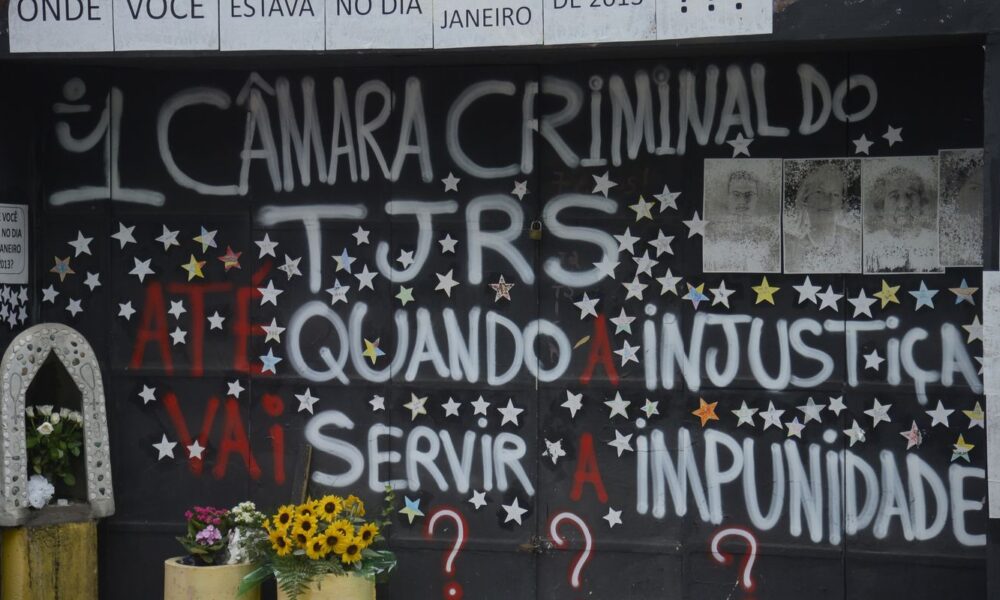 ONDE VOCÊ ESTAVA NO DIA
JANEIRO DE 2013 ???
1ª CÂMARA CRIMINAL DO
TJRS
ATÉ QUANDO A INJUSTIÇA
VAI SERVIR A IMPUNIDADE
? ? ?
VOCÊ
NO DIA
JANEIRO
2013?